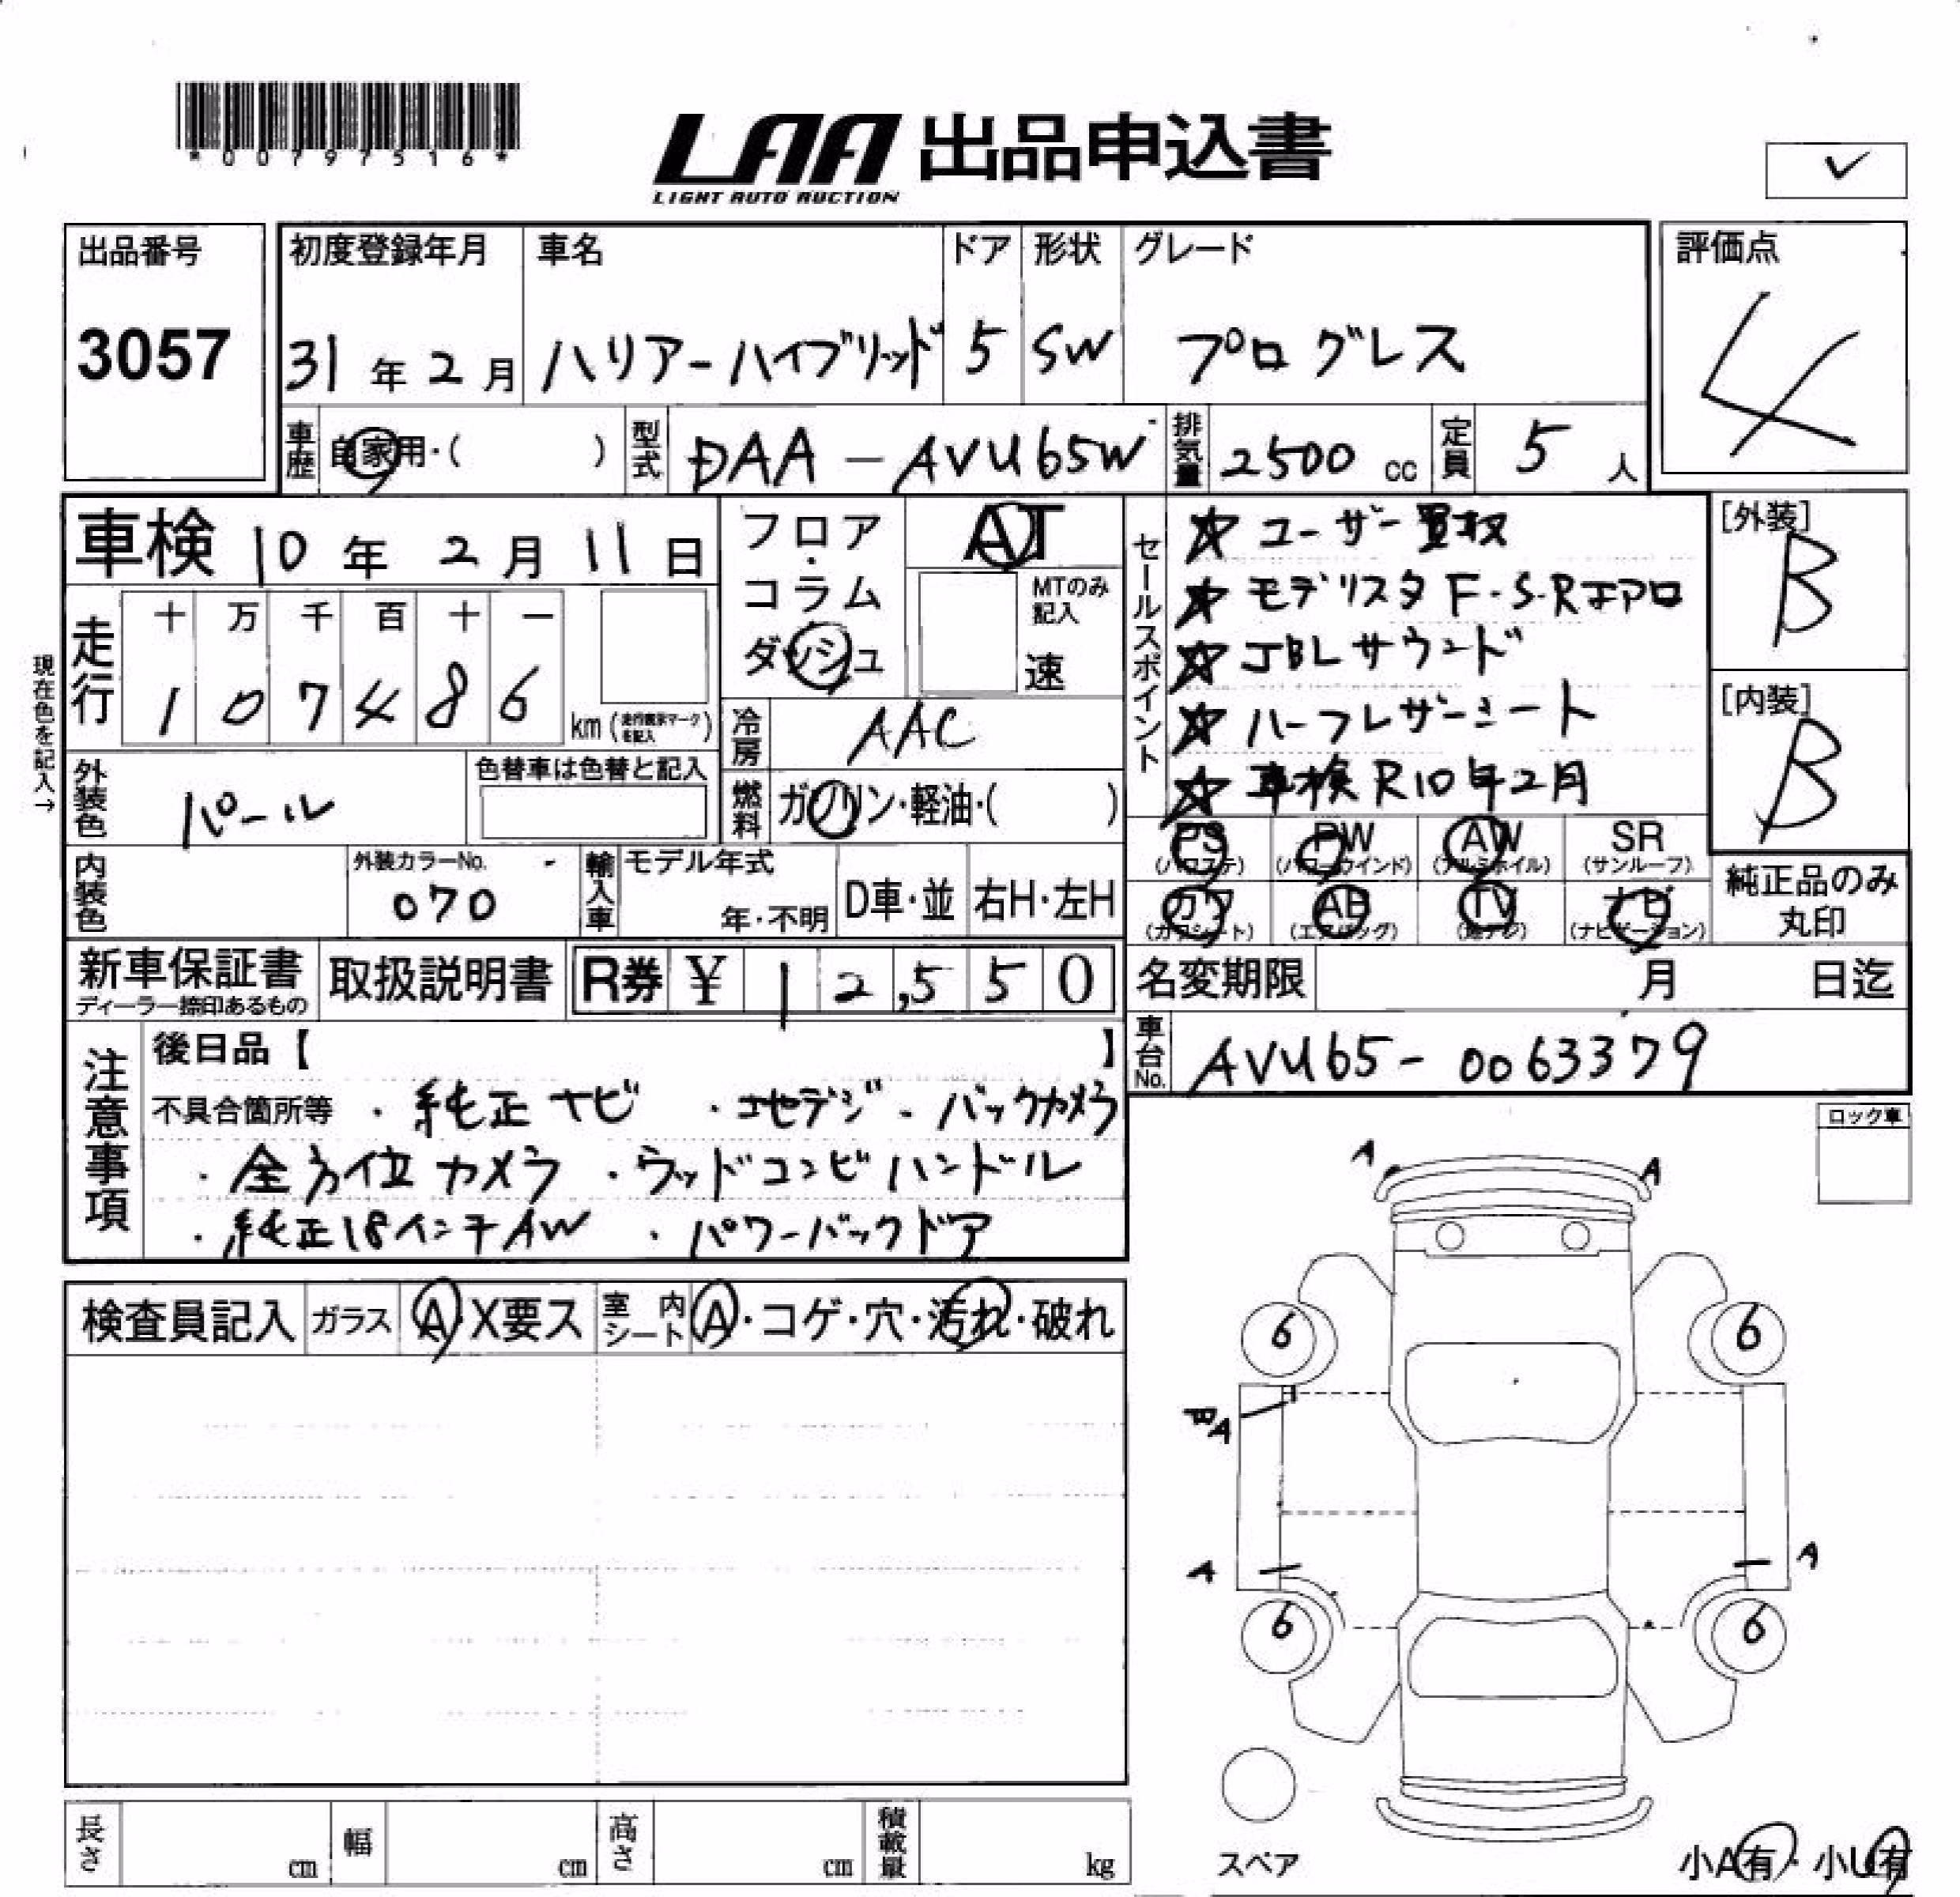 *00797516*
LAA 出品申込書
LIGHT AUTO AUCTION
✓
出品番号
3057
初度登録年月 車名 ドア 形状 グレード
31年2月 ハリアーハイブリッド 5 SW プログレス
評価点
4
車歴 自家用・( ) 型式 DAA-AVU65W 排気量 2500cc 定員 5人
車検 10年2月11日
フロア・コラム
ダッシュ
AT
MTのみ記入
速
セールスポイント
☆ユーザー買取
☆モデリスタF.S.Rエアロ
☆JBLサウンド
☆ハーフレザーシート
☆車検R10年2月
[外装]
B
[内装]
B
現在色を記入→
走行 十 万 千 百 十 一
1 0 7 4 8 6 km (走行表示マークを記入)
冷房 AAC
外装色 パール 色替車は色替と記入
燃料 ガソリン・軽油・( )
PS (パワステ) PW (パワーウインド) AW (アルミホイル) SR (サンルーフ)
カワ (カワシート) AB (エアバッグ) TV (地デジ) ナビ (ナビゲーション)
純正品のみ丸印
内装色 外装カラーNo. 070
輸入車 モデル年式 年・不明 D車・並 右H・左H
新車保証書 ディーラー捺印あるもの 取扱説明書 R券 ¥ 12,550
名変期限 月 日迄
車台No. AVU65-0063379
注意事項
後日品【 】
不具合箇所等 ・純正ナビ ・地デジ・バックカメラ
・全方位カメラ ・ウッドコンビハンドル
・純正18インチAW ・パワーバックドア
ロック車
A A
検査員記入 ガラス A・X要ス 室内シート A・コゲ・穴・汚れ・破れ
6 6
A
A A
6 6
スペア
小A有・小U有
長さ cm 幅 cm 高さ cm 積載量 kg